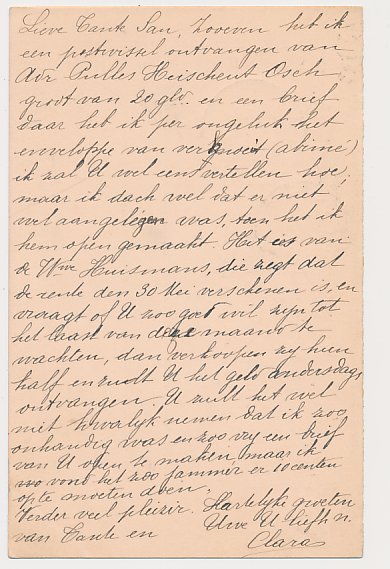 Lieve Tante San, Zooeven heb ik
een postwissel ontvangen van
Adr Pulles Heischeut Osch
groot van 20 gld. en een brief
daar heb ik per ongeluk het
enveloppe van verknoeit (abime)
ik zal U wel eens vertellen hoe,
maar ik dach wel dat er niet
veel aangelegen was, toen heb ik
hem open gemaakt. Het is van
de Wwe Huismans, die zegt dat
de rente den 30 Mei verschenen is, en
vraagt of U zoo goet wil zijn tot
het laast van deze maand te
wachten, dan verkoopen zy hun
half en zult U het geld anderdags
ontvangen. U zult het wel
niet kwalyk nemen dat ik zoo
onhandig was en zoo vry een brief
van U open te maken, maar ik
vond het zoo jammer er 10 centen
op te moeten doen.
Verder veel plezier. Hartelyke groeten
van Tante en Uwe U liefh. n.
Clara